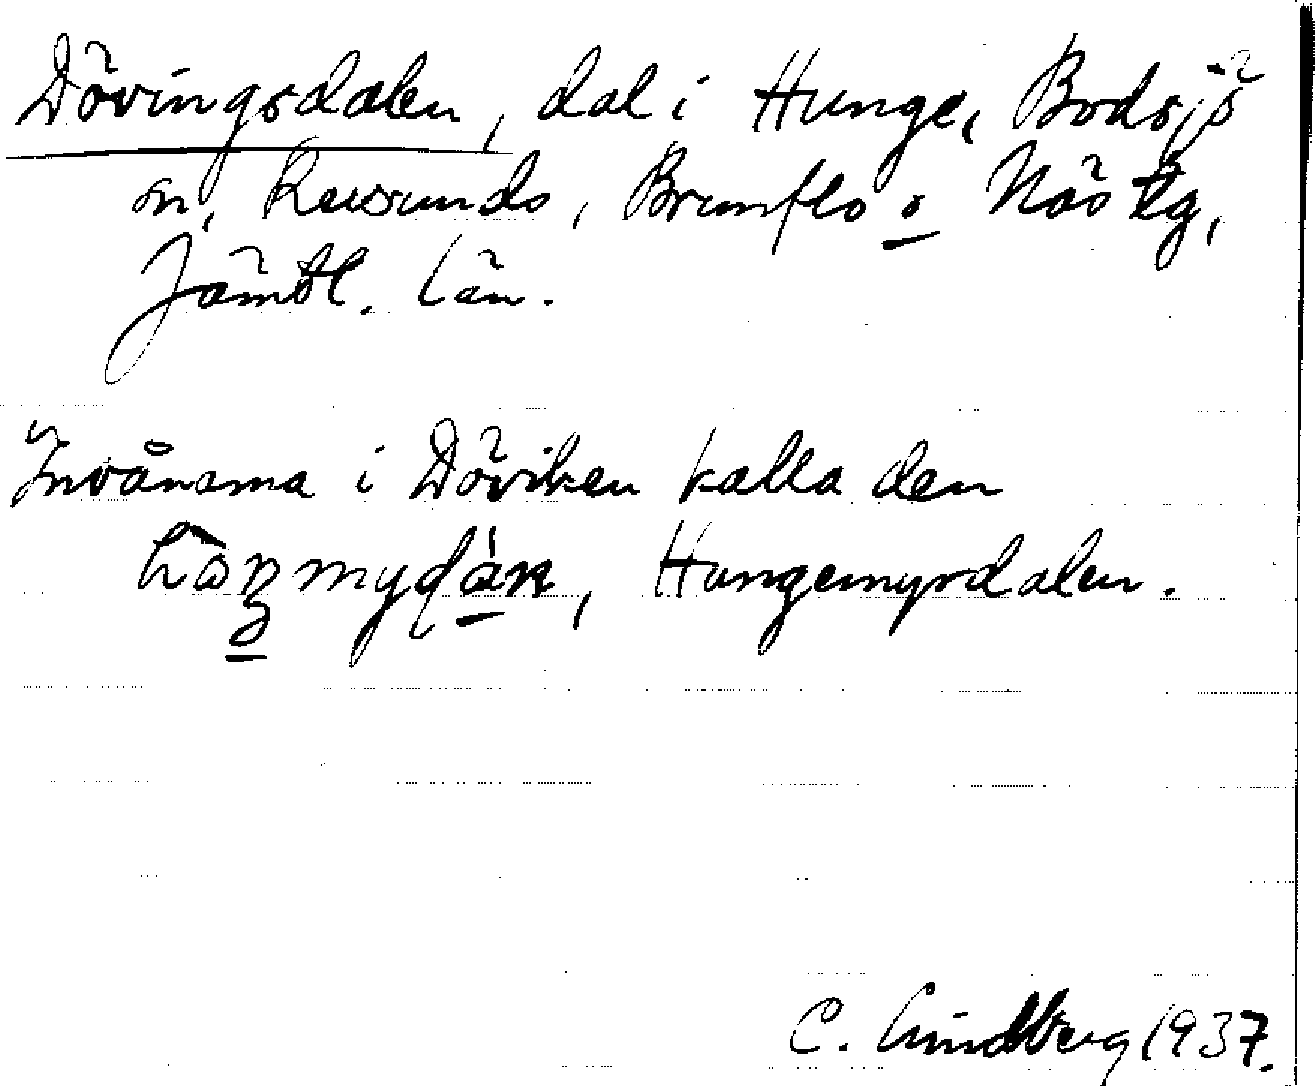 Dövingsdalen, dal i Hunge, Bodsjö
sn, Revsunds, Brunflo o Näs tg,
Jämtl. län.
Invånarna i Döviken kalla den
, Hungemyrdalen.
C. Lindberg 1937.